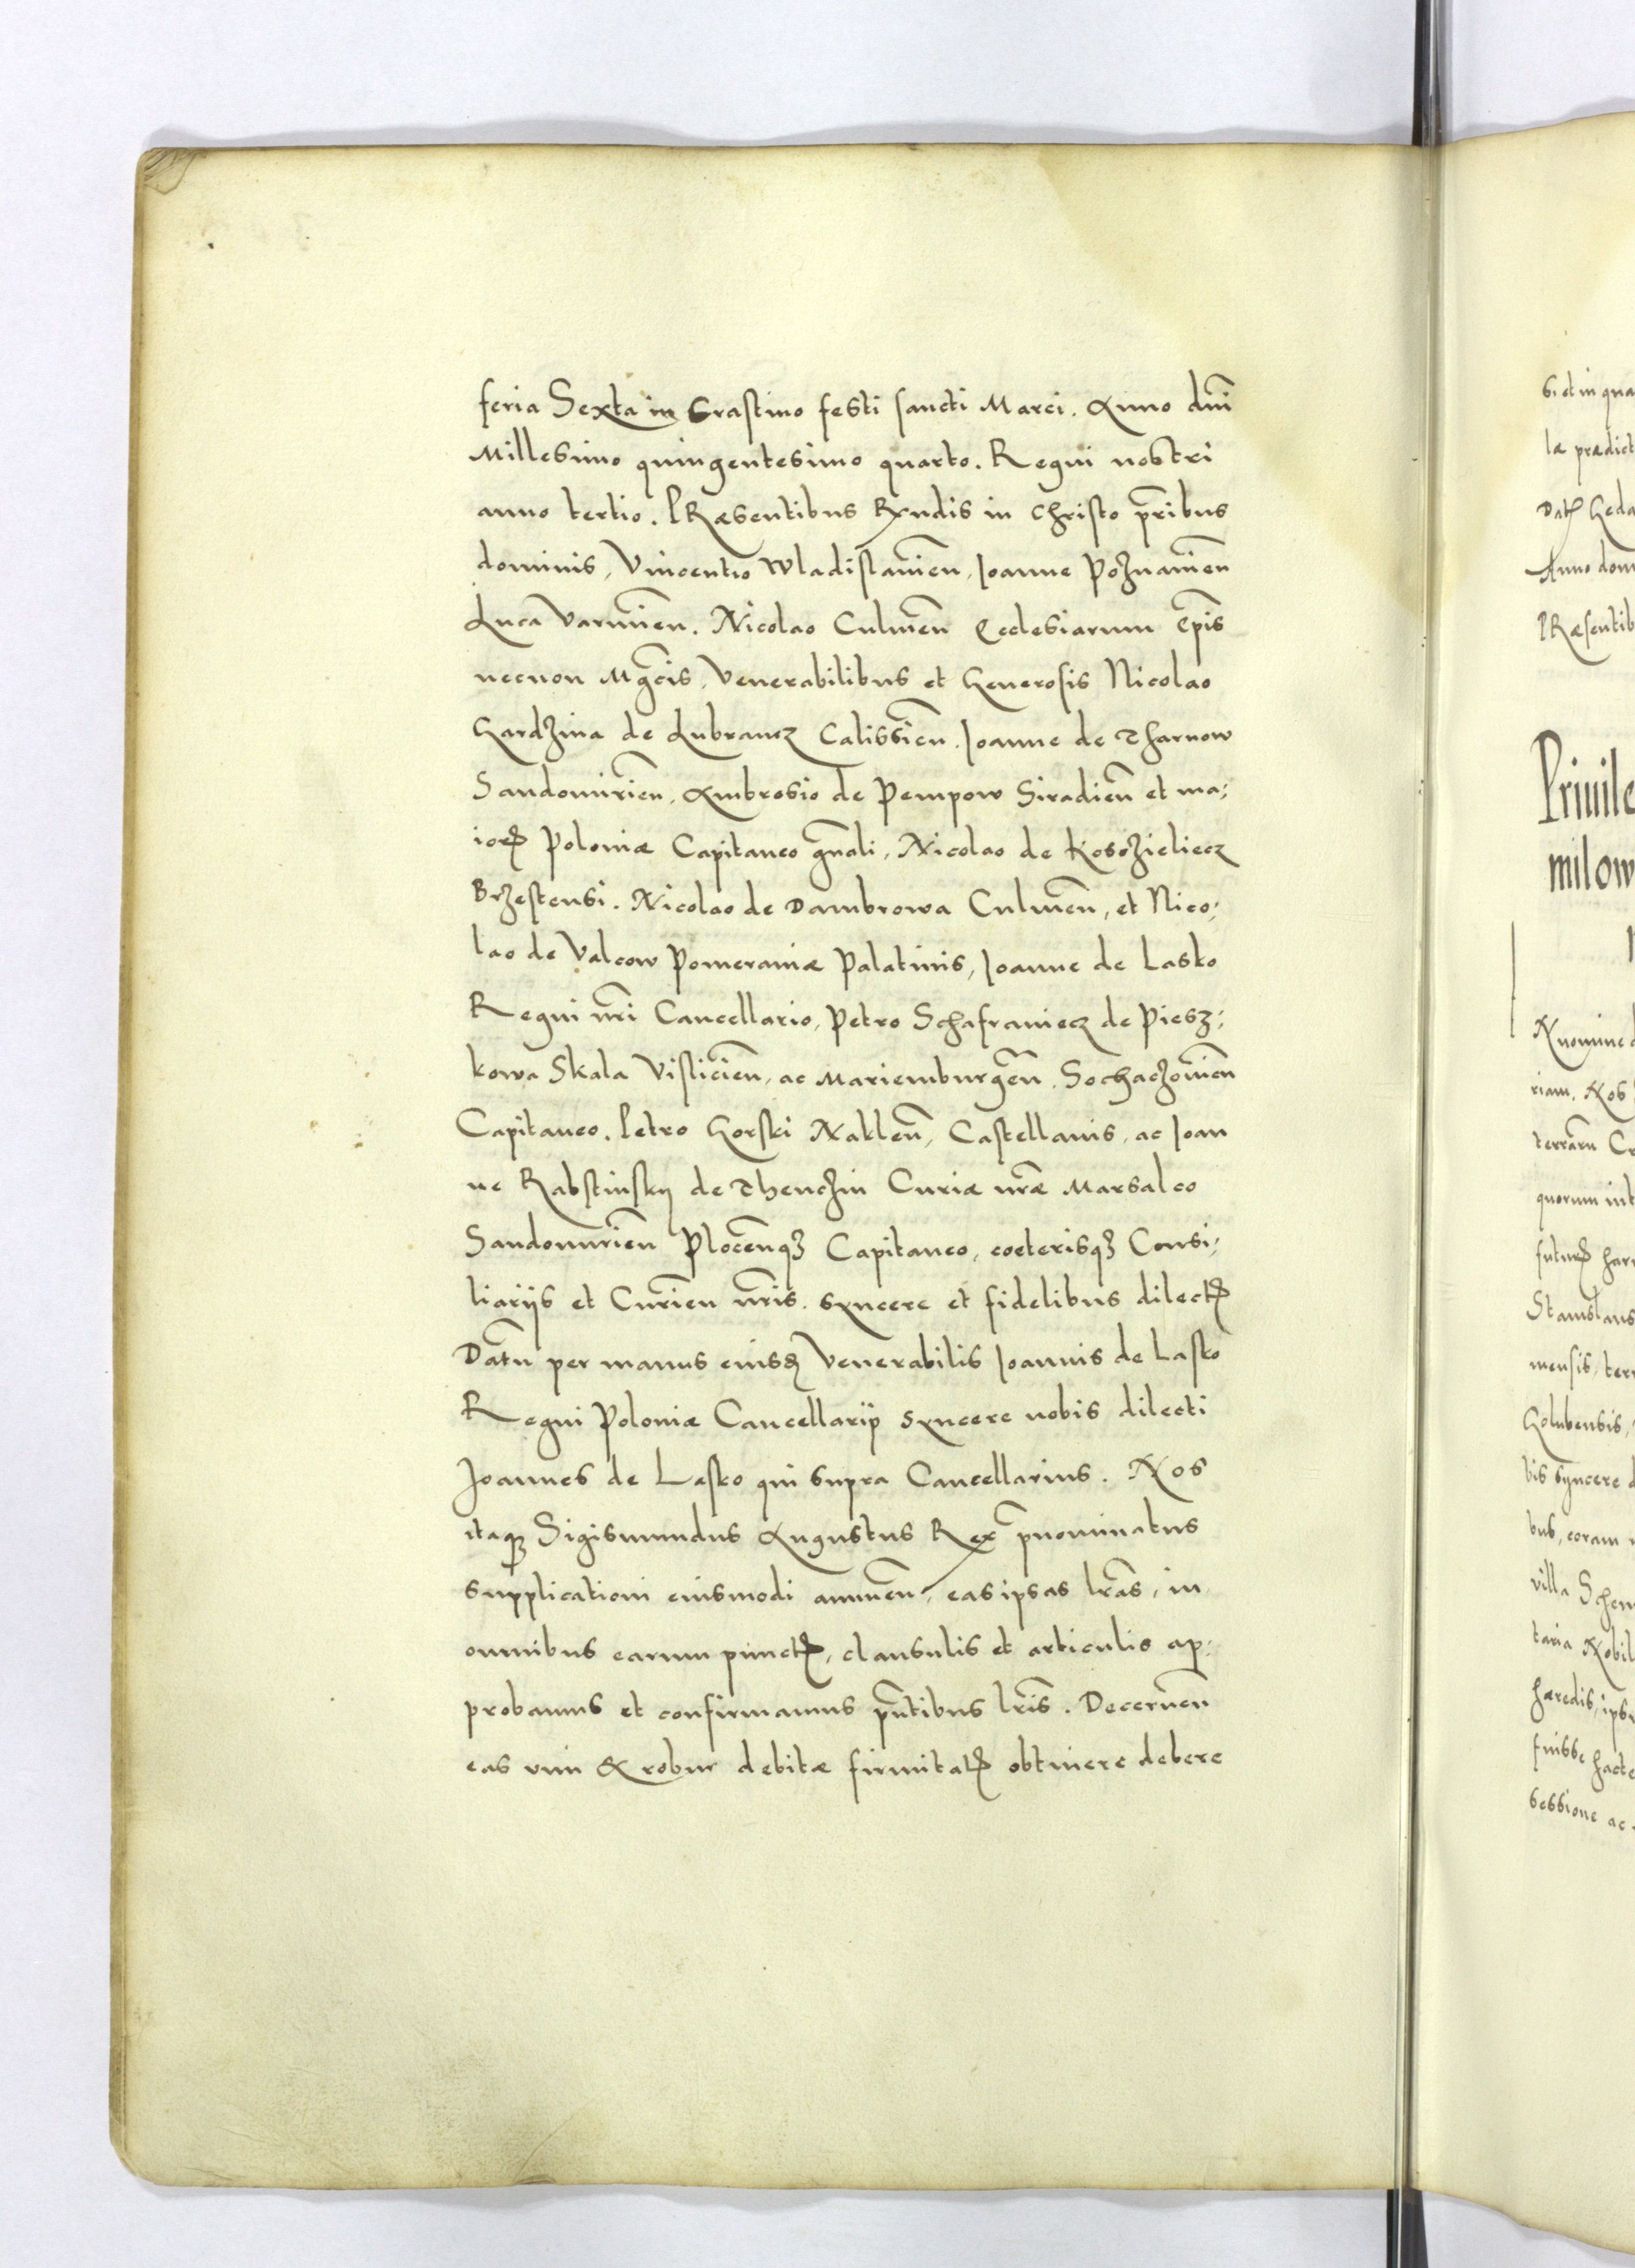 feria Sexta in Crastino festi sancti Marci. Anno dn̄i
Millesimo quingentesimo quarto. Regni nostri
anno tertio. PRæsentibus Rx̄ndis in Christo pr̄ibus
dominis, Vincentio Wladislavien̄, Ioanne Poznanien̄
Luca Varmien̄. Nicolao Culmen̄ Ecclesiarum Ep̄is
necnon Mḡcis, Venerabilibus et Generosis Nicolao
Gardzina de Lubrancz Calissien̄. Ioanne de Tharnow
Sandomirien̄, Ambrosio de Pempow Siradien̄ et ma;
ioꝝ Poloniæ Capitaneo gn̄ali, Nicolao de Kosczieliecz
Brzestensi. Nicolao de Dambrowa Culmen̄, et Nico;
lao de Valcow Pomeraniæ Palatinis, Ioanne de Lasko
Regni nr̄i Cancellario, Petro Schafraniecz de Piesz;
kowa Skala Visliciēn, ac Mariemburgēn. Sochaczovien̄
Capitaneo. Petro Gorski Naklen̄, Castellanis, ac Ioan
ne Rabstinsky de Thenczin Curiæ nr̄æ Marsalco
Sandomirien̄ Plocen̄qꝫ Capitaneo, coeterisqꝫ Consi;
liariis et Curien̄ nr̄is. syncere et fidelibus dilectꝭ
Datn̄ per manus eiusdꝫ Venerabilis Ioannis de Lasko
Regni Poloniæ Cancellarii syncere nobis dilecti
Joannes de Lasko qui supra Cancellarius. Nos
itaqꝫ Sigismundus Augustus Rex p̄nominatus
supplicationi eiusmodi annuen̄, eas ipsas lr̄as, in
omnibus earum punctꝭ, clausulis et articulis ap;
probamus et confirmamus pn̄tibus lr̄is. Decernen̄
eas vim & robur debitæ firmitatꝭ obtinere debere
si et in qua
læ prædict
Datꝭ Geda
Anno dom
PRæsentib
Priuile
milow
N nomine d
riam. Nos
terrarū Cr
quorum int
futurꝝ har
Stanislaus
mensis, terr
Golubensis,
bis syncere d
bus, coram
villa Schem
taria Nobil
hæredis, ips
fuisse hacte
sessione ac